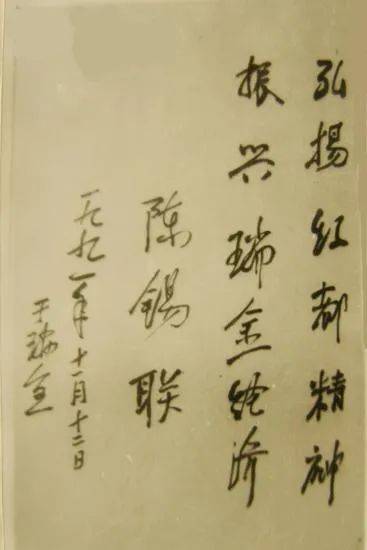 弘揚红都精神
振兴瑞金经济
陈锡联
一九九一年十一月十二日
于瑞金